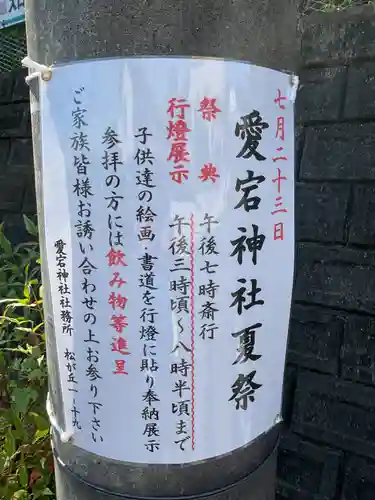 七月二十三日
愛宕神社夏祭
祭典 午後七時斎行
行燈展示 午後三時頃～八時半頃まで
子供達の絵画・書道を行燈に貼り奉納展示
参拝の方には飲み物等進呈
ご家族皆様お誘い合わせの上お参り下さい
愛宕神社社務所 松が丘一ノ十九